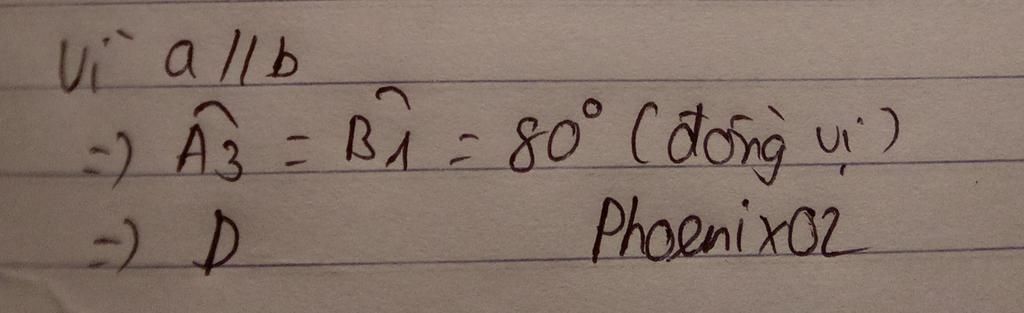 Vì a // b
=> Â3 = B̂1 = 80° (đồng vị)
=> D Phoenix02